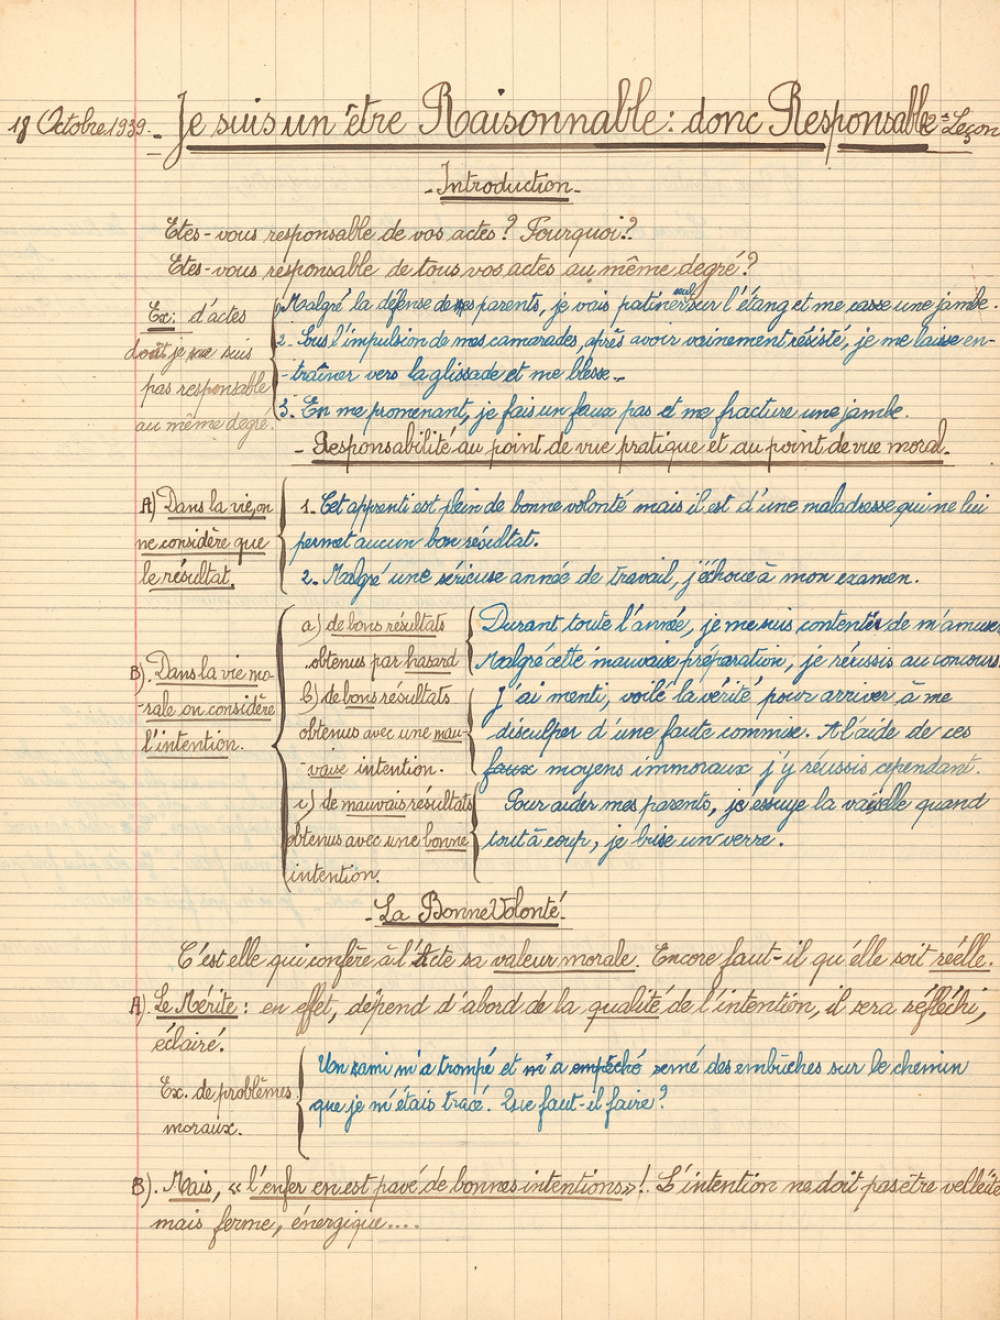 18 Octobre 1939. - Je suis un être Raisonnable : donc Responsable - Leçon
- Introduction -
Etes-vous responsable de vos actes ? Pourquoi ?
Etes-vous responsable de tous vos actes au même degré ?
Ex : d'actes
dont je ne suis
pas responsable
au même degré.
1. Malgré la défense de mes parents, je vais patiner seul sur l'étang et me casse une jambe.
2. Sous l'impulsion de mes camarades, après avoir vainement résisté, je me laisse en-
-traîner vers la glissade et me blesse.
3. En me promenant, je fais un faux pas et me fracture une jambe.
- Responsabilité au point de vue pratique et au point de vue moral.
A) Dans la vie, on
ne considère que
le résultat.
1. Cet apprenti est plein de bonne volonté mais il est d'une maladresse qui ne lui
permet aucun bon résultat.
2. Malgré une sérieuse année de travail, j'échoue à mon examen.
B). Dans la vie mo-
-rale on considère
l'intention.
a) de bons résultats
obtenus par hasard
Durant toute l'année, je me suis contenté de m'amuser
Malgré cette mauvaise préparation, je réussis au concours.
b) de bons résultats
obtenus avec une mau-
vaise intention.
J'ai menti, voilé la vérité pour arriver à me
disculper d'une faute commise. A l'aide de ces
faux moyens immoraux j'y réussis cependant.
c) de mauvais résultats
obtenus avec une bonne
intention.
Pour aider mes parents, je essuye la vaisselle quand
tout à coup, je brise un verre.
- La Bonne Volonté -
C'est elle qui confère à l'Acte sa valeur morale. Encore faut-il qu'elle soit réelle.
A). Le Mérite : en effet, dépend d'abord de la qualité de l'intention, il sera réfléchi,
éclairé.
Ex. de problèmes
moraux.
Un ami m'a trompé et m'a empêché semé des embûches sur le chemin
que je m'étais tracé. Que faut-il faire ?
B). Mais, « l'enfer en est pavé de bonnes intentions » ! L'intention ne doit pas être velléité
mais ferme, énergique....